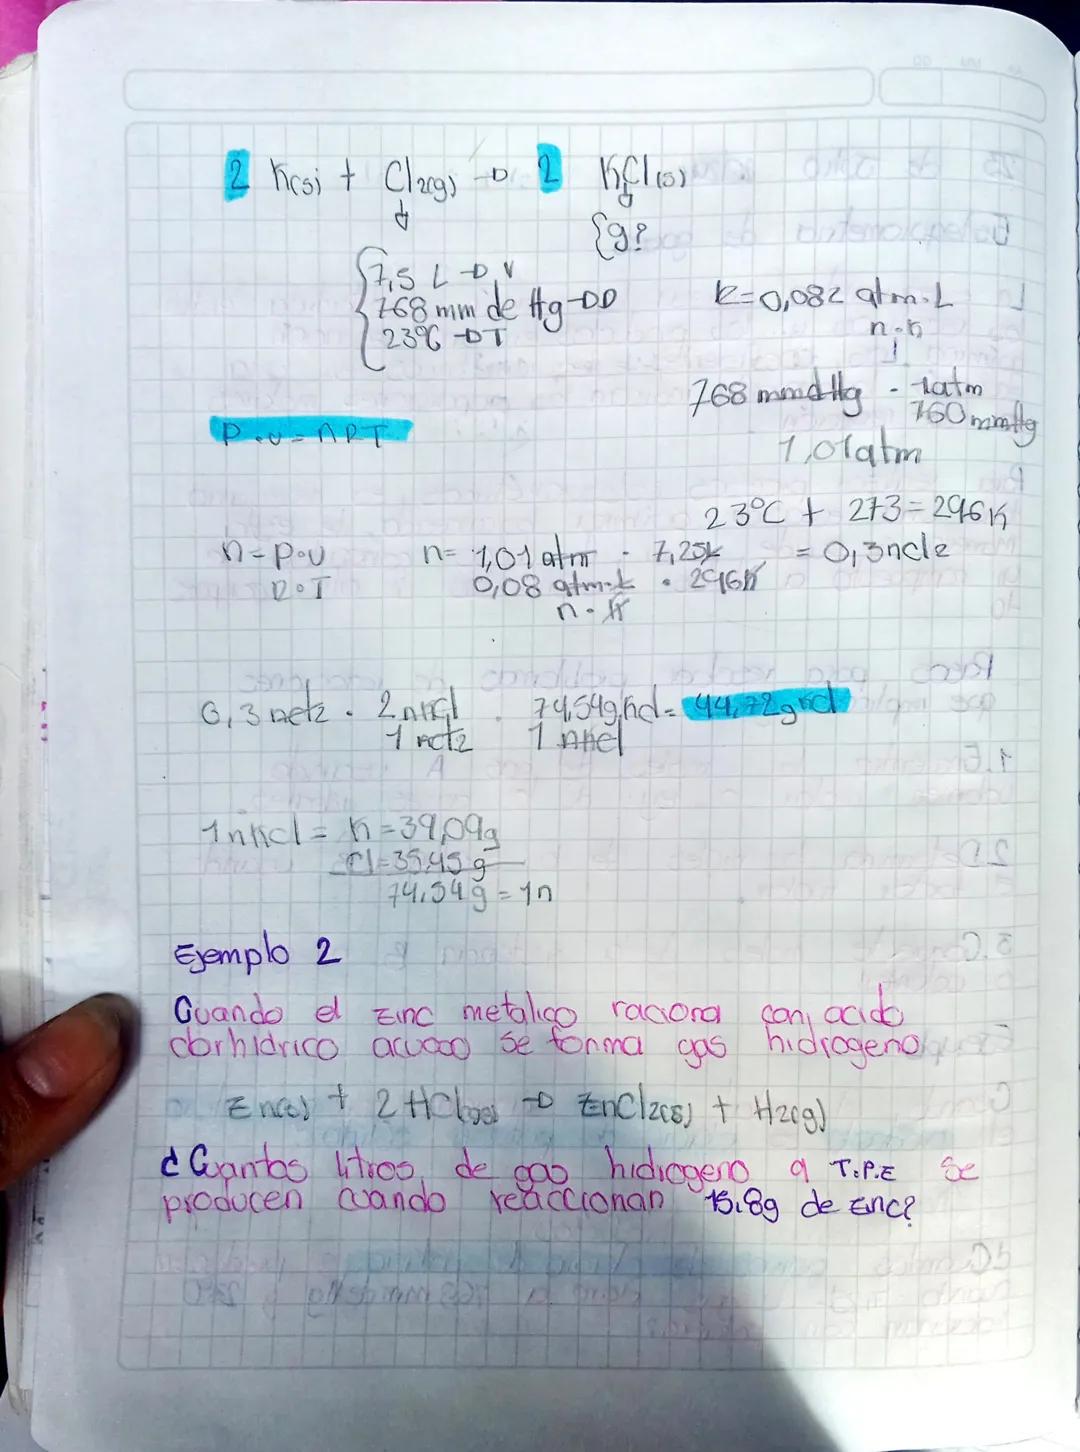 2 K(s) + Cl2(g) → 2 KCl(s)
{g?
7,5 L → V
768 mm de Hg → P
23°C → T
R=0,082 atm.L
n.k
768 mmdHg . 1atm
760 mmHg
P.v = nRT
1,01atm
23°C + 273 = 296K
n = P.v
R.T
n = 1,01 atm . 7,25L = 0,3ncl2
0,08 atm.L . 296K
n.K
0,3 ncl2 . 2 nKcl . 74,54g Kcl = 44,72g Kcl
1 ncl2 1 nKcl
1nKcl = K = 39,09g
Cl = 35,45 g
74,54g = 1n
Ejemplo 2
Cuando el zinc metalico raciona con acido
clorhidrico acuoso se forma gas hidrogeno
Zn(s) + 2 HCl → ZnCl2(s) + H2(g)
¿Cuantos litros de gas hidrogeno a T.P.E se
producen cuando reaccionan 15.8g de zinc?